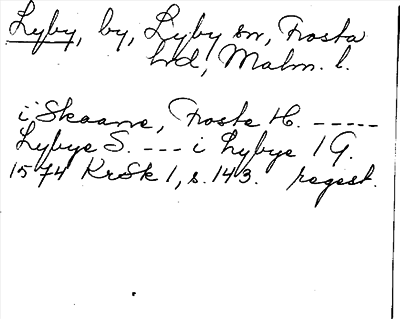 Lyby, by, Lyby sn, Frosta
hd, Malm. l.
i Skaane, Froste H. -----
Lybye S. --- i Lybye 1 G.
1574 KrSk 1, s. 143. regest.